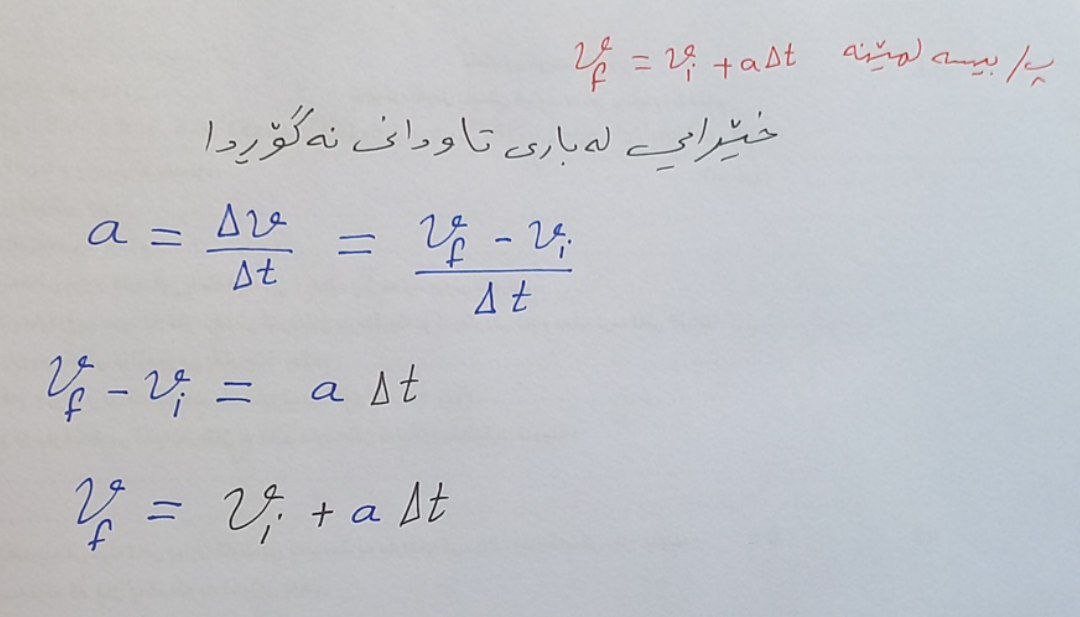 پ/ بیسەلمێنە v_f = v_i + aΔt
خێرایی لەباری تاودانی نەگۆڕدا
a = Δv/Δt = (v_f - v_i)/Δt
v_f - v_i = a Δt
v_f = v_i + a Δt